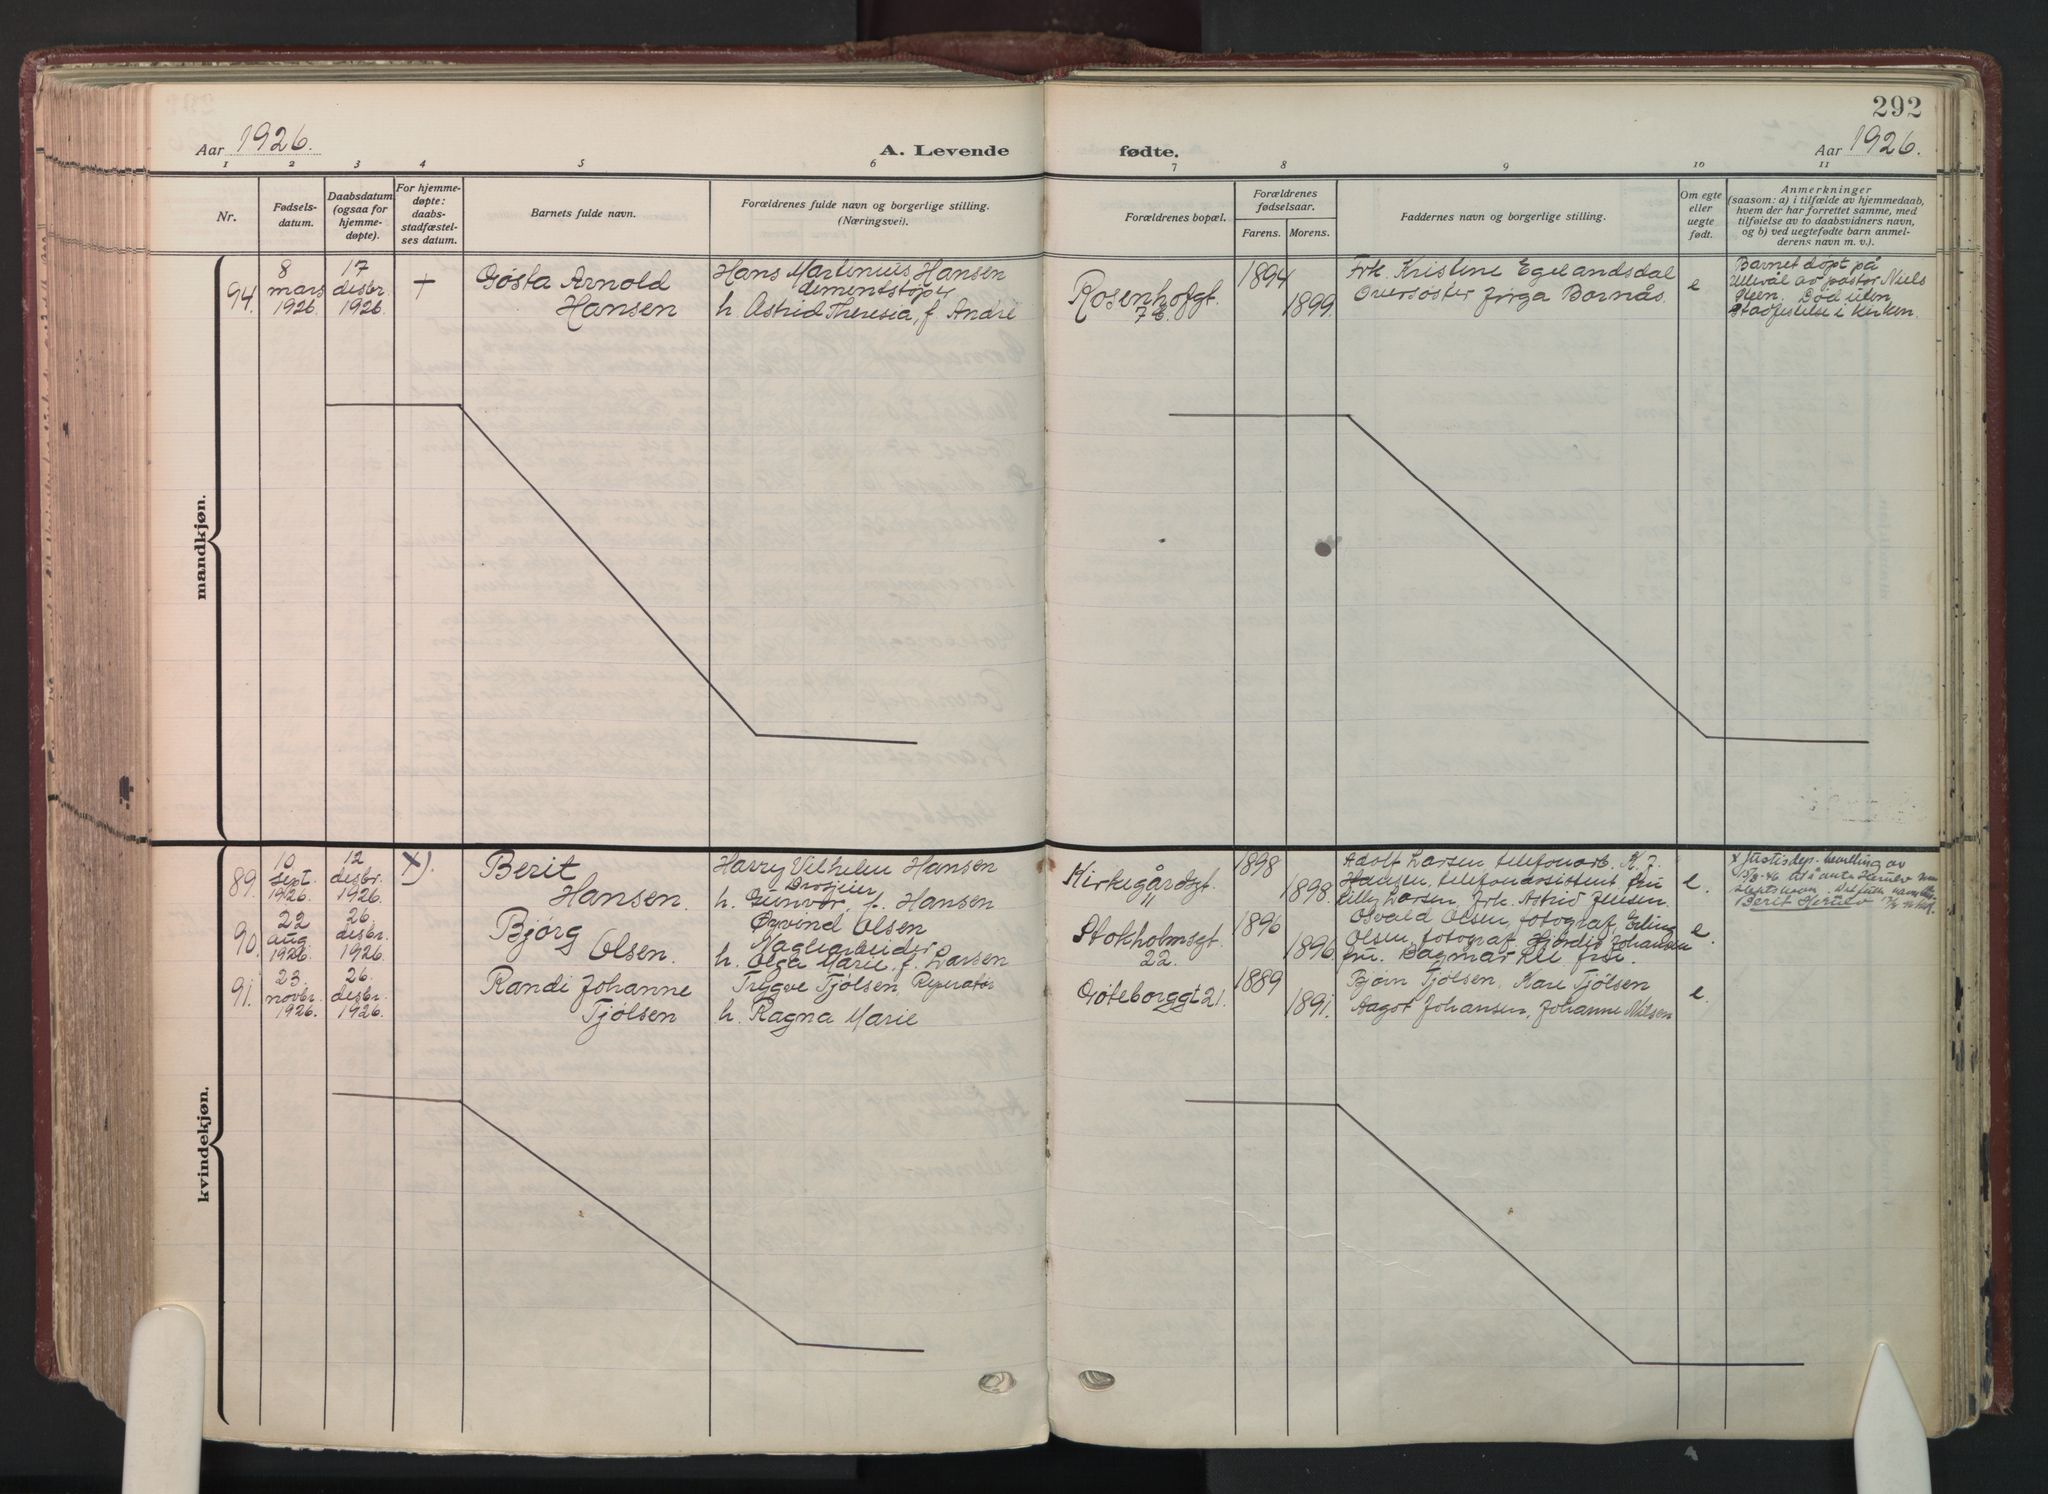 292
Aar 1926.
A. Levende
fødte.
Aar 1926.
1 2 3 4 5 6 7 8 9 10 11
Nr.
Fødsels-
datum.
Daabsdatum
(ogsaa for
hjemme-
døpte).
For hjemme-
døpte:
daabs-
stadfæstel-
ses datum.
Barnets fulde navn.
Forældrenes fulde navn og borgerlige stilling.
(Næringsvei).
Forældrenes bopæl.
Forældrenes
fødselsaar.
Farens. Morens.
Faddernes navn og borgerlige stilling.
Om egte
eller
uegte
født.
Anmerkninger
(saasom: a) i tilfælde av hjemmedaab,
hvem der har forrettet samme, med
tilføielse av to daabsvidners navn,
og b) ved uegtefødte barn anmel-
derens navn m. v.).
mandkjøn.
94.
8
mars
1926.
17
desbr.
1926.
+
Gösta Arnold
Hansen
Hans Martinius Hansen
cementstøper
h. Astrid Theresia, f. André
Rosenhofgt.
7 B.
1894
1899.
Frk. Kristine Egelandsdal
Oversøster Jørga Bornås.
e
Barnet døpt på
Ullevål av pastor Niels
Olsen. Død uten
stadfestelse i kirken.
kvindekjøn.
89.
10
sept.
1926.
12
desbr.
1926.
x).
Berit
Hansen.
Harry Vilhelm Hansen
Drosjeier
h. Gunvor, f. Hansen
Kirkegårdsgt.
11
1898
1898.
Adolf Larsen telefonarb. K. J.
Hansen, telefonassistent, fru
Lilly Larsen, frk. Astrid Jensen.
e.
x Justisdep. bevilling av
Berit Herulv
90.
22
aug.
1926.
26.
desbr.
1926.
Bjørg
Olsen.
Øyvind Olsen
Maglearbeider
h. Olga Marie, f. Larsen
Stokholmsgt.
22.
1896
1896.
Osvald Olsen, fotograf, Erling
Olsen, fotograf, Hjørdis Johansen
fru. Dagmar
e.
91.
23.
novbr.
1926.
26
desbr.
1926.
Randi Johanne
Tjølsen
Trygve Tjølsen, Reparatør
h. Ragna Marie
Göteborggt 21.
1889
1891.
Bjørn Tjølsen, Kare Tjølsen
Aagot Johansen, Johanne Nilsen
e.